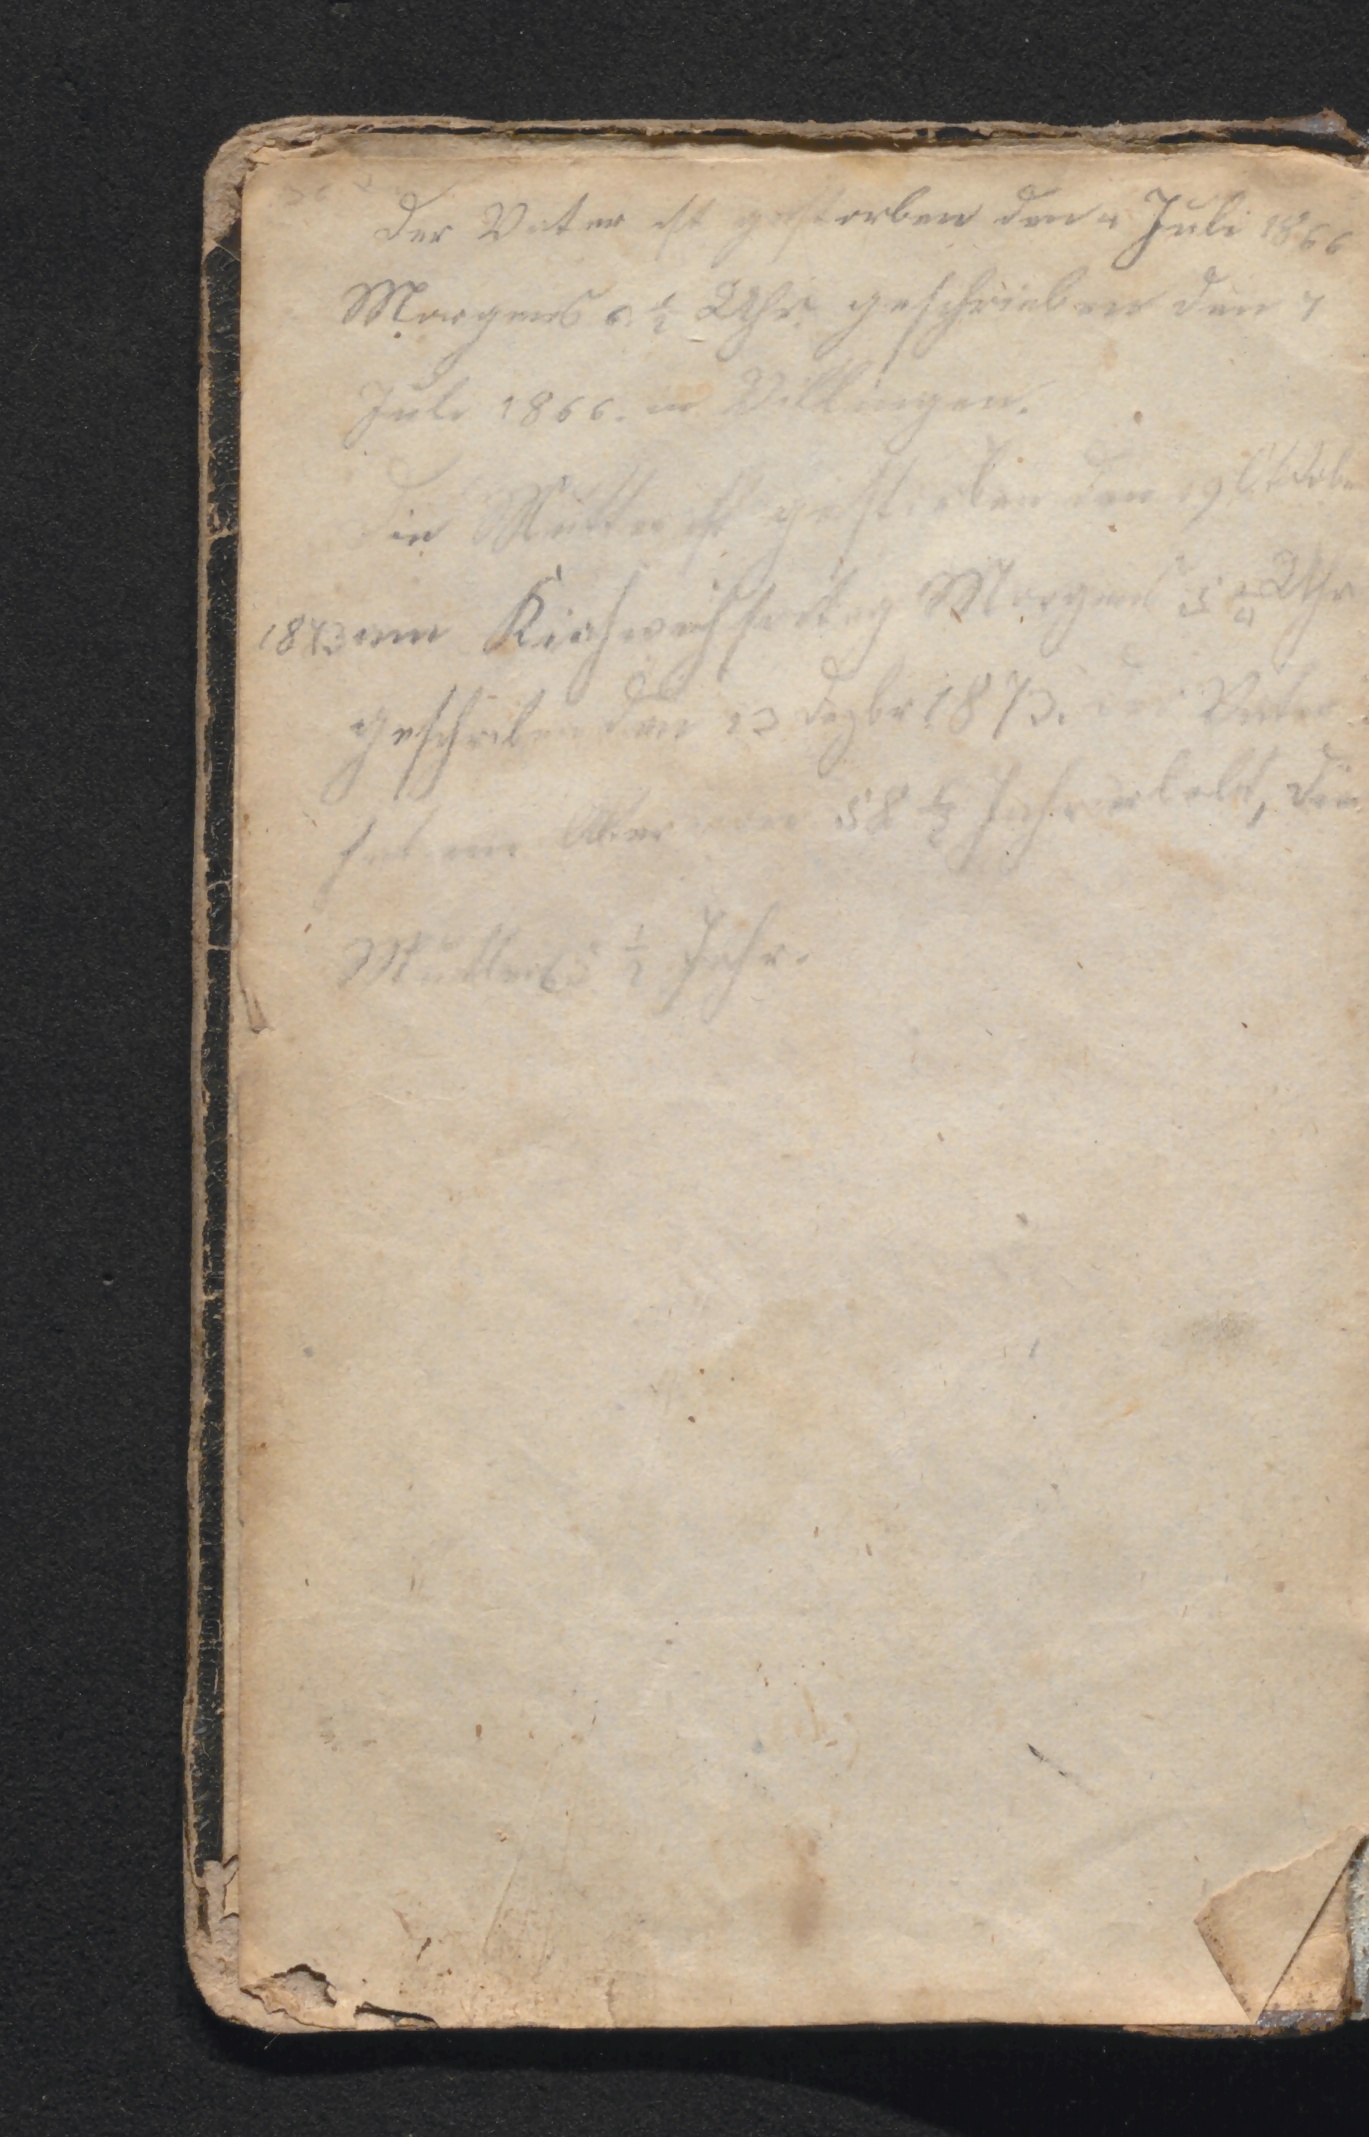 Der Vater ist gestorben den 4 Juli 1866
Morgens 6 ½ Uhr. geschrieben den 7
Juli 1866. in Villingen.
Die Mutter ist gestorben den 19 Oktober
1873 am Kirchweihsontag Morgens 5 ¾ Uhr
geschrieben den 23 Dezbr 1873. der Vater
hat ein Alter von 58 ½ Jahr erlebt, die
Mutter ½ Jahr.